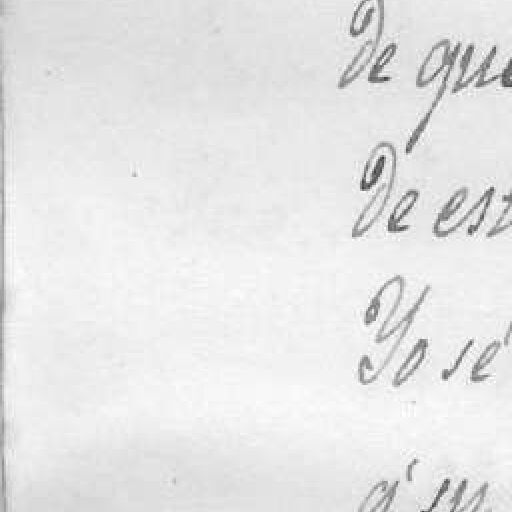 De que
De est
Yo sé
á su